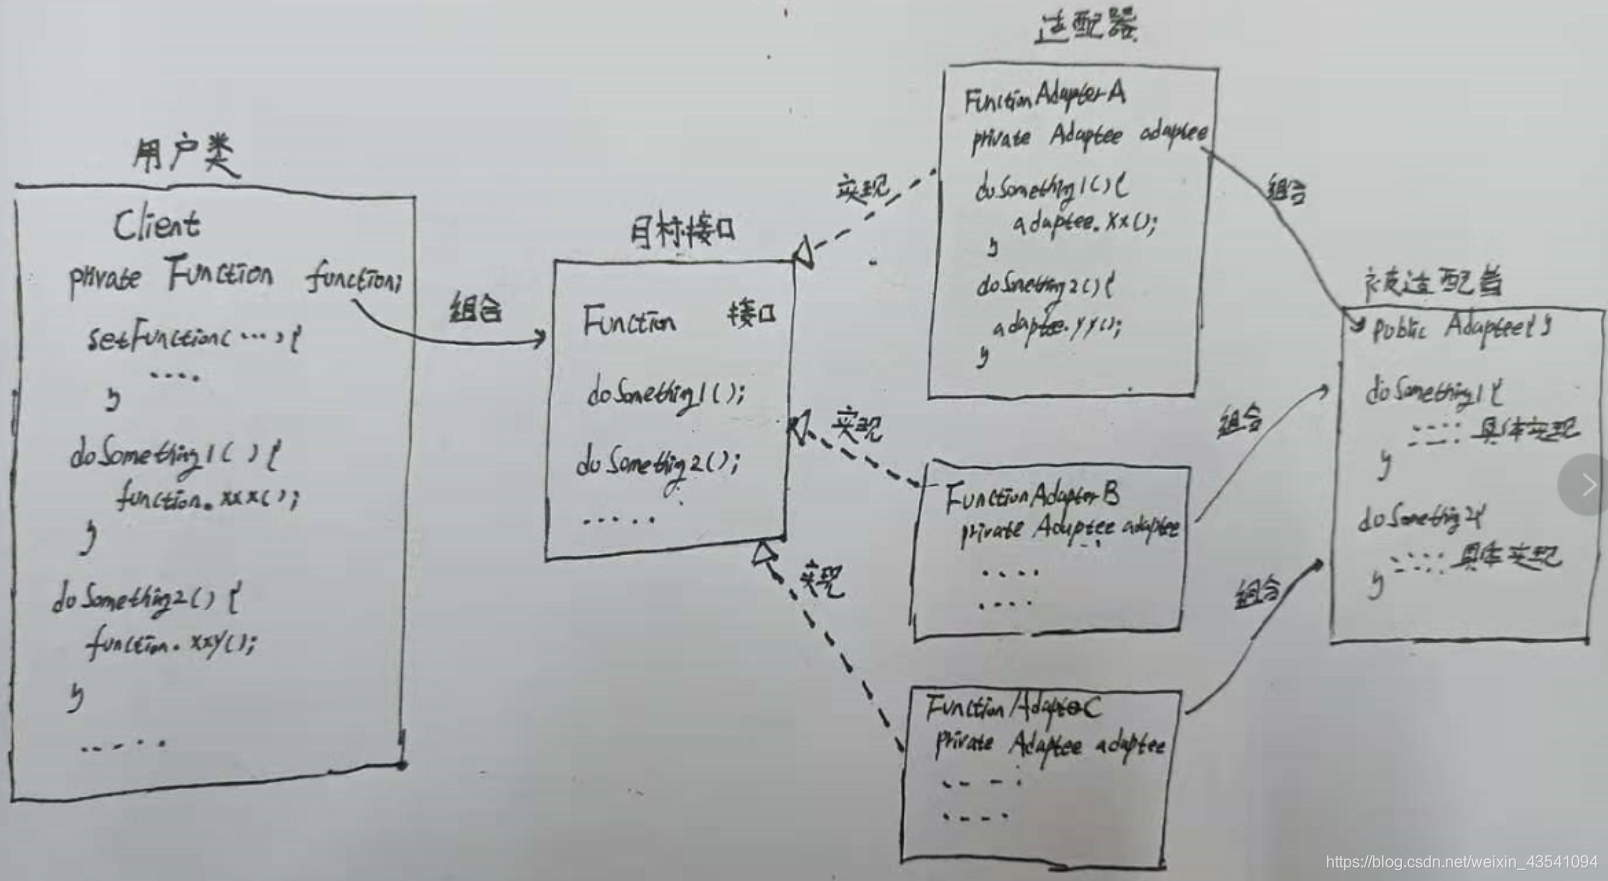 用户类
Client
private Function function;
setFunction(···){
····
}
doSomething1(){
function.xxx();
}
doSomething2(){
function.xxy();
}
·····
组合
目标接口
Function 接口
doSomething1();
doSomethig2();
·····
实现
实现
实现
适配器
FunctionAdapterA
private Adaptee adaptee
doSomething1(){
adaptee.xx();
}
doSomething2(){
adaptee.yy();
}
FunctionAdapterB
private Adaptee adaptee
····
····
FunctionAdapterC
private Adaptee adaptee
----
----
组合
组合
组合
被适配者
public Adaptee{}
doSomething1{
具体实现
}
doSomethig2{
具体实现
}
https://blog.csdn.net/weixin_43541094